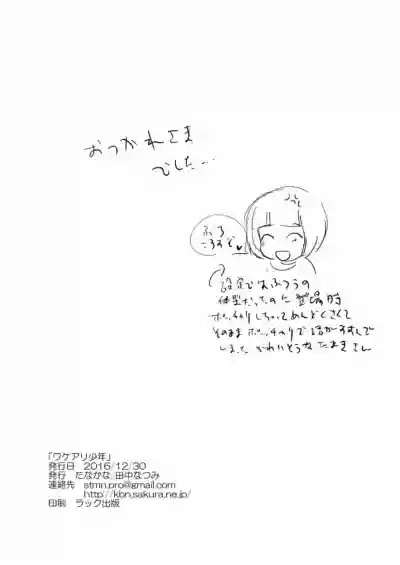 おつかれさま
でした…
ぶち
ころすぞ♥
設定ではふつうの
体型だったのに登場時
ポッチャリしちゃってめんどくさくて
そのまま ポッチャリで話がすすんで
しまった かわいそうな たまきさん
「ワケアリ少年」
発行日 2016/12/30
発行 たなかな 田中なつみ
連絡先 stmn.pro@gmail.com
http://kbn.sakura.ne.jp/
印刷 ラック出版